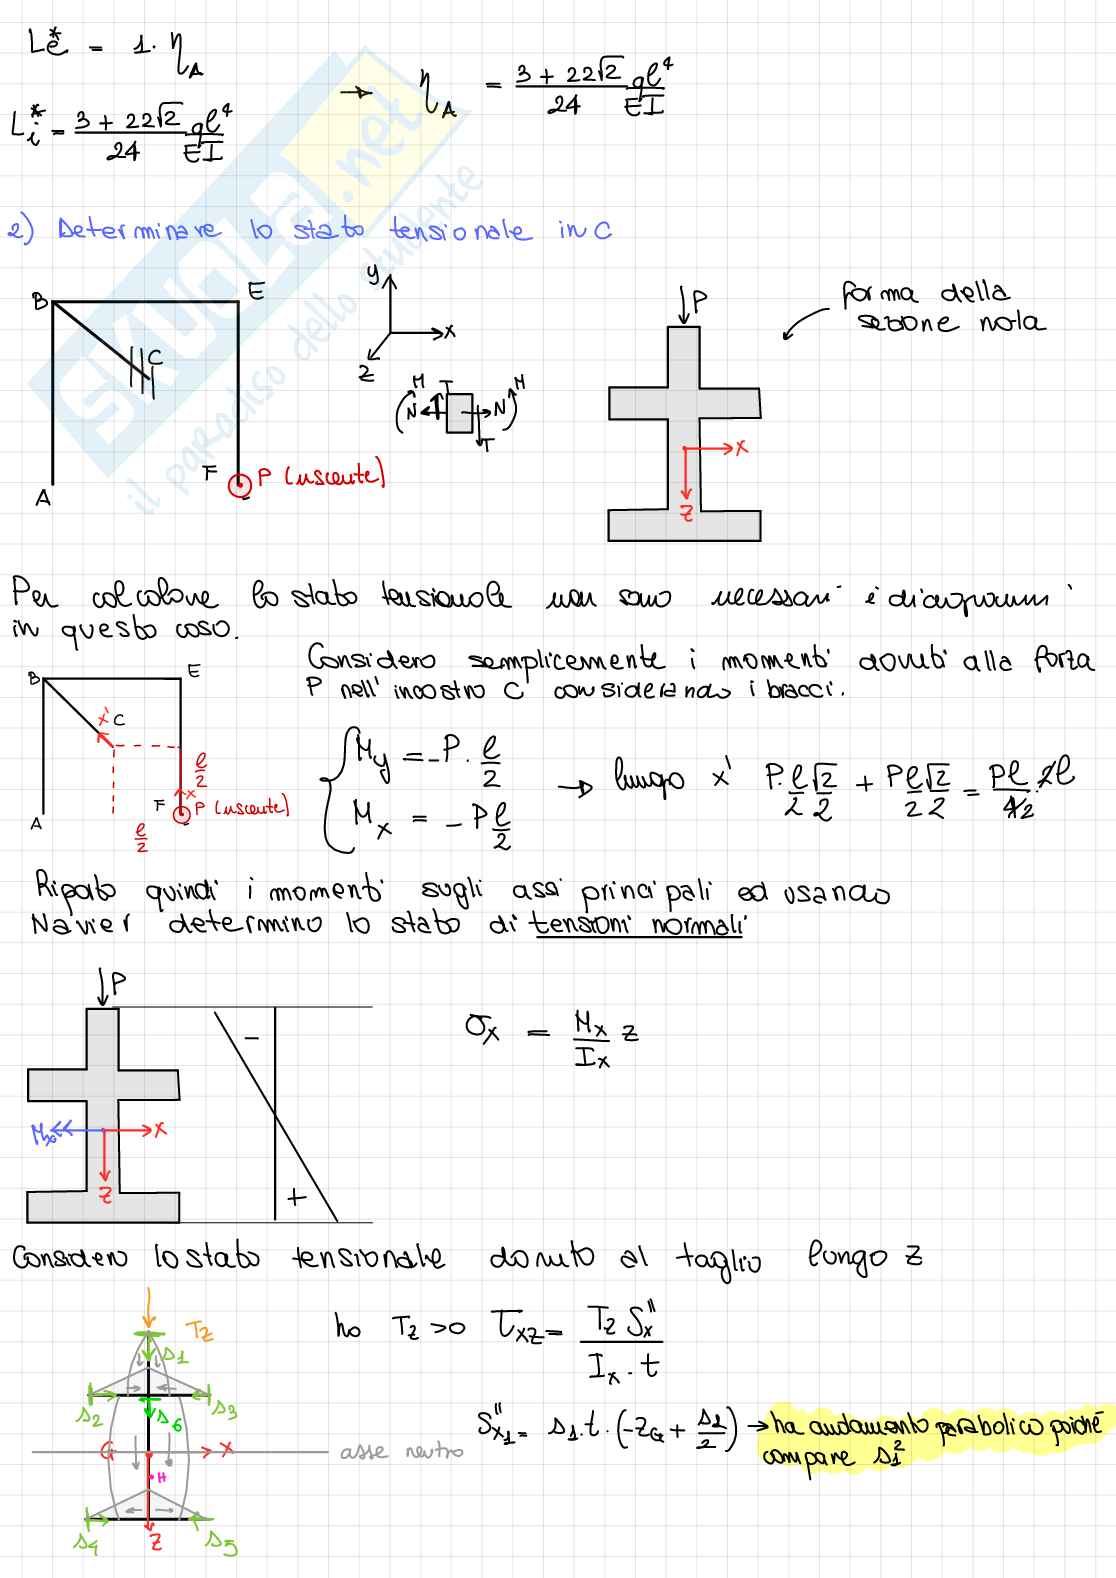 Le* = 1. ηA
Li* = 3 + 22√2 / 24 ql⁴ / EI
→ ηA = 3 + 22√2 / 24 ql⁴ / EI
SKUOLA.net
il paradiso dello studente
2) Determinare lo stato tensionale in C
B E C A F P (uscente)
y x z
M T N N M T
P
x
z
forma della
sezione nota
Per calcolare lo stato tensionale non sono necessari i diagrammi
in questo caso.
Considero semplicemente i momenti dovuti alla forza
P nell'incastro C considerando i bracci.
B E x' C l/2 x F P (uscente) A l/2
My = -P. l/2
Mx = - P l/2
→ lungo x' P. l/2 √2/2 + P l/2 √2/2 = Pl/42 . 2l
Riporto quindi i momenti sugli assi principali ed usando
Navier determino lo stato di tensioni normali
P
Mx x
z
- +
σx = Mx/Ix z
Considero lo stato tensionale dovuto al taglio lungo z
Tz
s1
s2 s3
s6
G x asse neutro
H
s4 z s5
ho Tz>0 τxz = Tz Sx'' / Ix . t
Sx1'' = s1.t.(-zG + s1/2) → ha andamento parabolico poichè
compare s1²